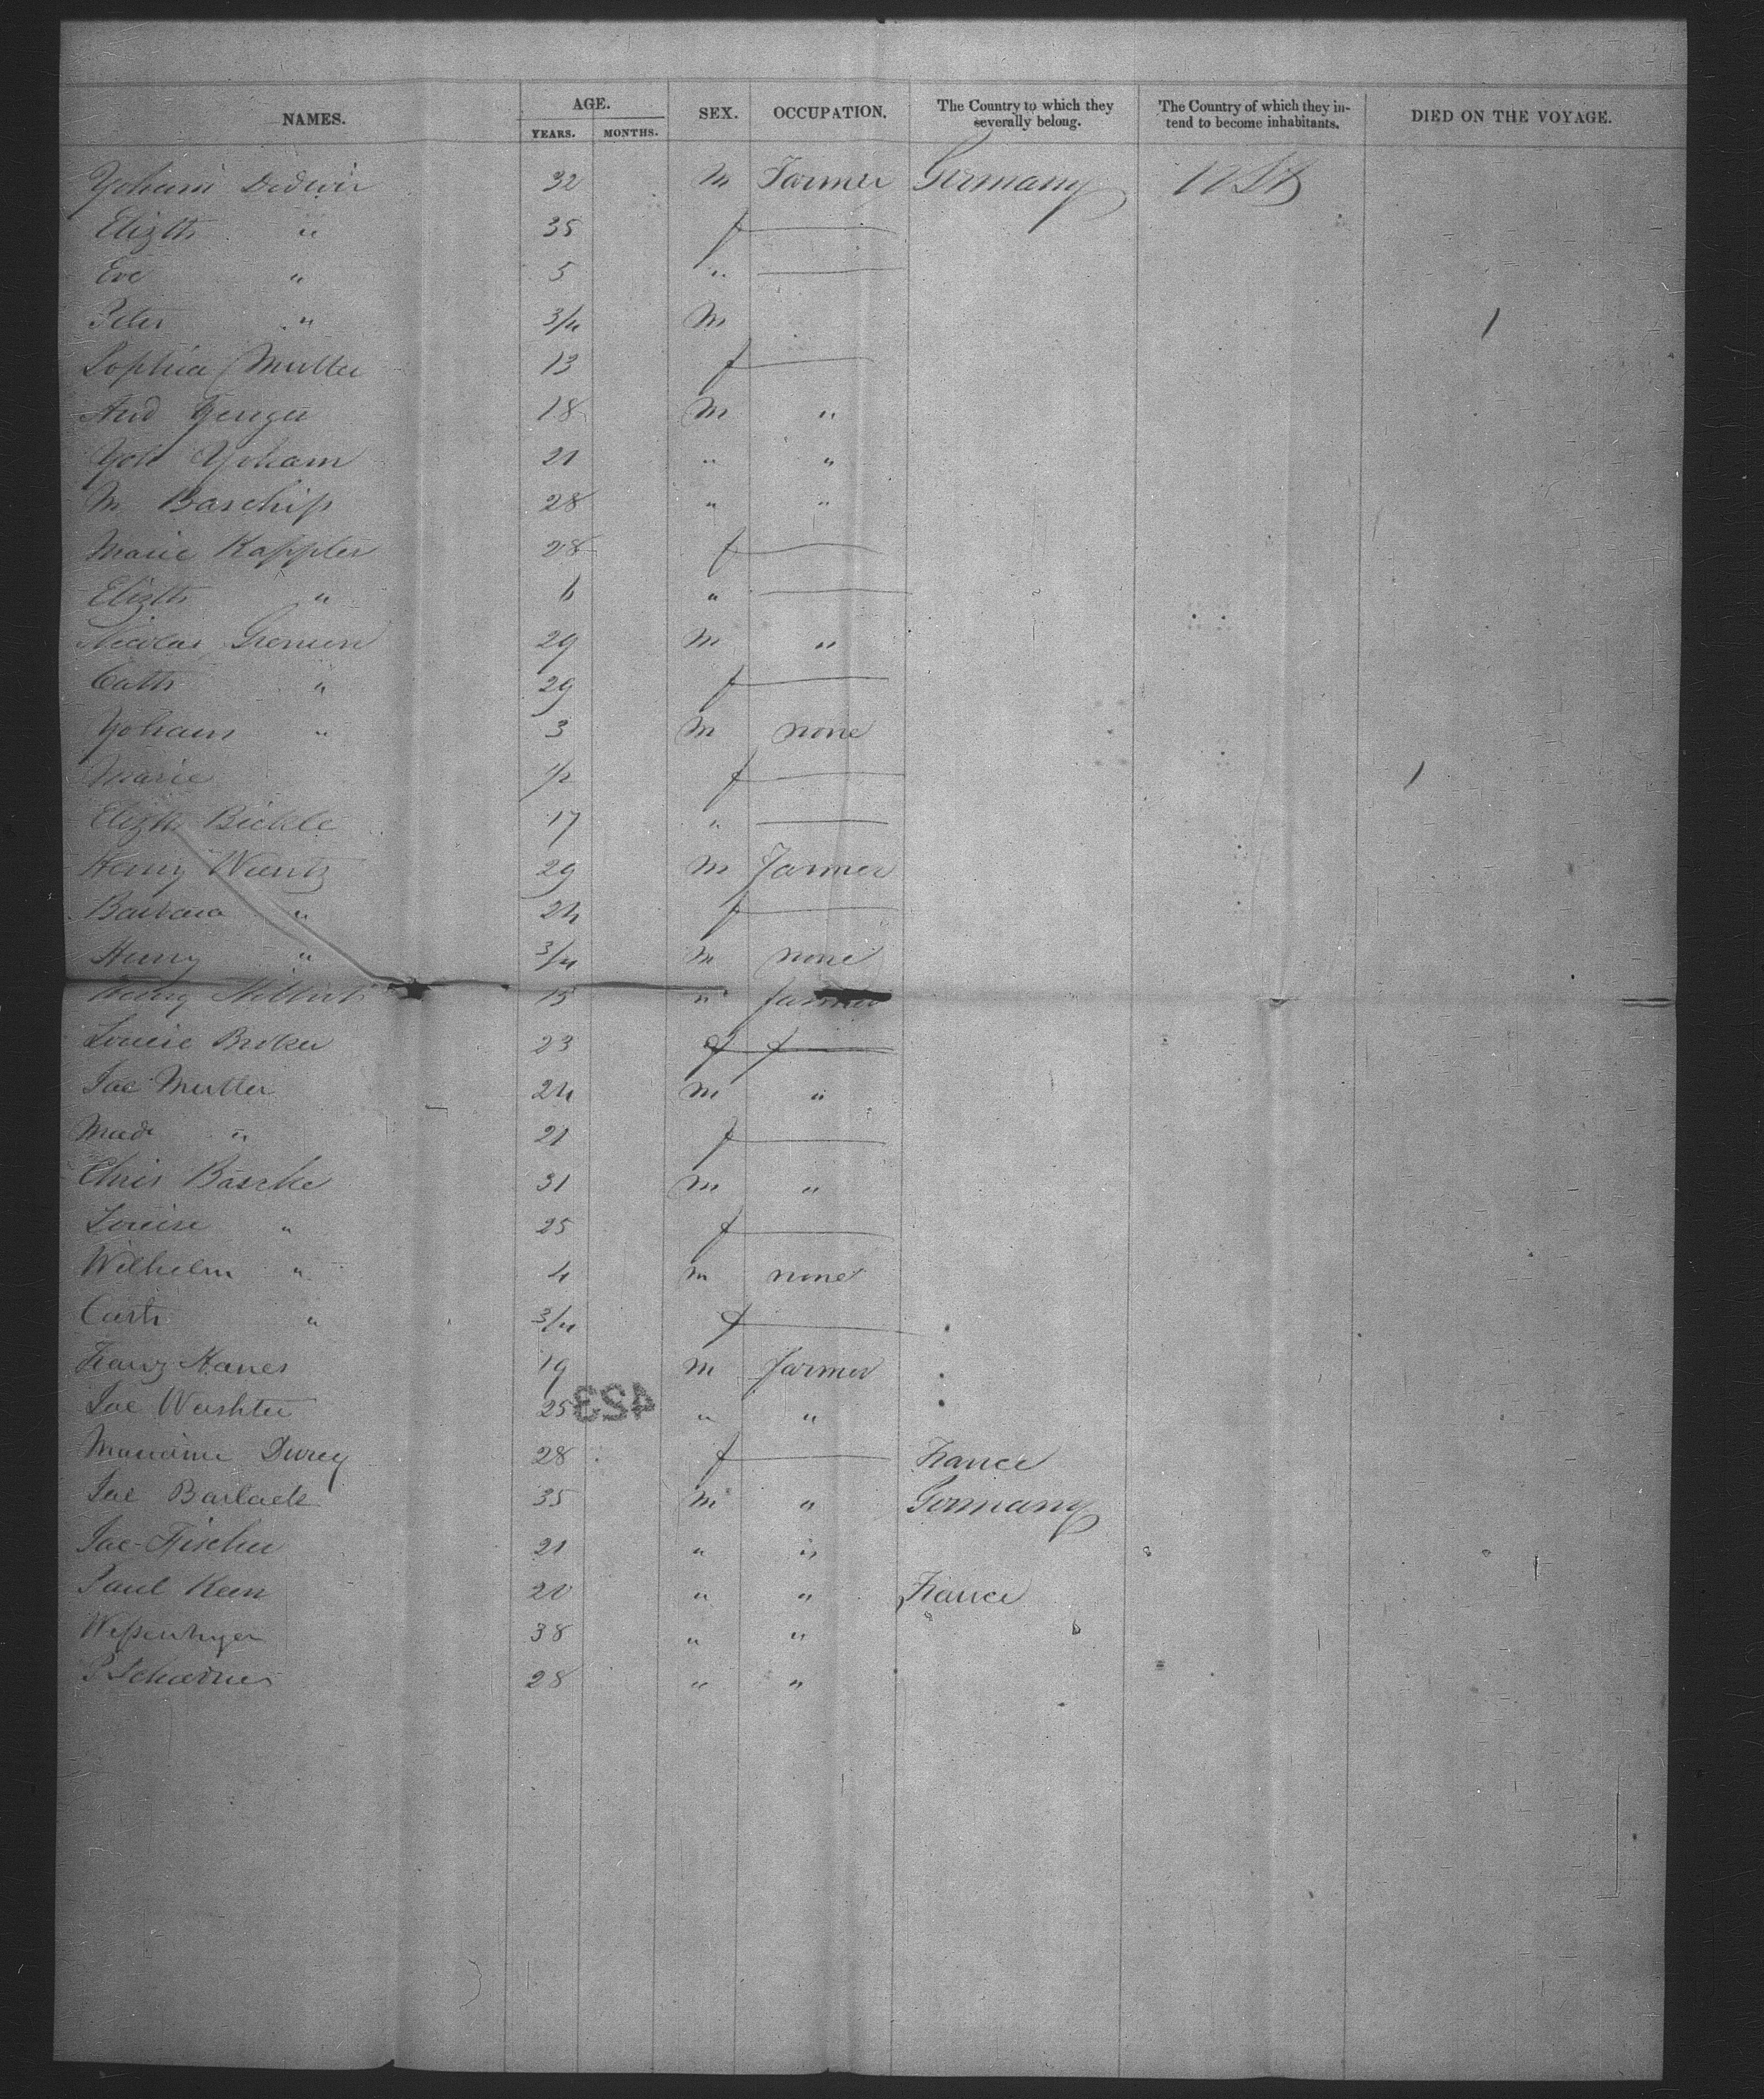 NAMES. AGE. SEX. OCCUPATION. The Country to which they severally belong. The Country of which they intend to become inhabitants. DIED ON THE VOYAGE.
YEARS. MONTHS.
Yoham 32 m Farmer Germany U St
Elizth " 35 f
Eve " 5 "
Peter " 3/4 m 1
Sophia Muller 13 f
And 18 m "
Yoh Yoham 21 " "
M Baschiss 28 " "
Marie Kappler 28 f
Elizth " 6 "
Nicolas 29 m "
Cath " 29 f
Yoham " 3 m none
Marie 1/2 f 1
Elizth Bickle 17 "
Henry Wurtz 29 m Farmer
Barbara " 24 f
Henry " 3/4 m none
Henry 15 " farmer
Louise Broker 23 f
Jac Mutter 24 m "
Mad " 21 f
Chris Baseke 31 m "
Louise " 25 f
Wilhelm " 4 m none
Cath " 3/4 f
Franz Hanes 19 m farmer
423
Jac Washter 25 " "
Marianne Durey 28 f France
Jac Barlack 35 m " Germany
Jac Fischer 21 " "
Paul Keen 20 " " France
38 " "
P 28 " "